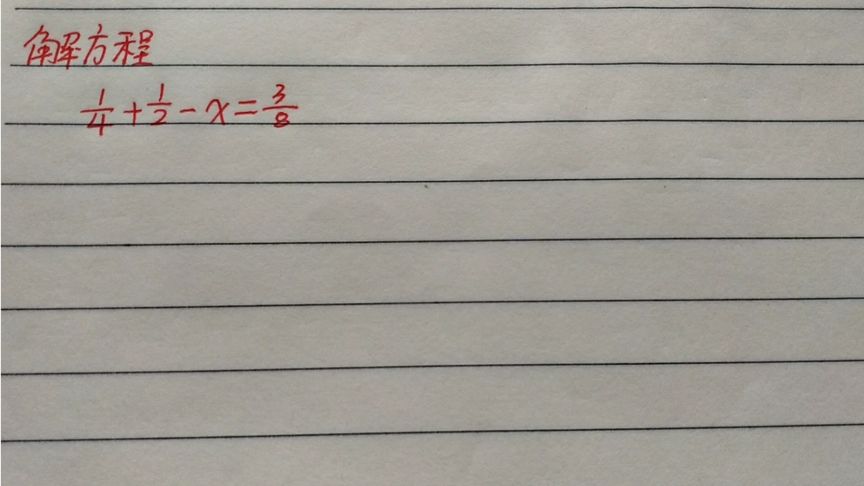 解方程
1/4 + 1/2 - x = 3/8